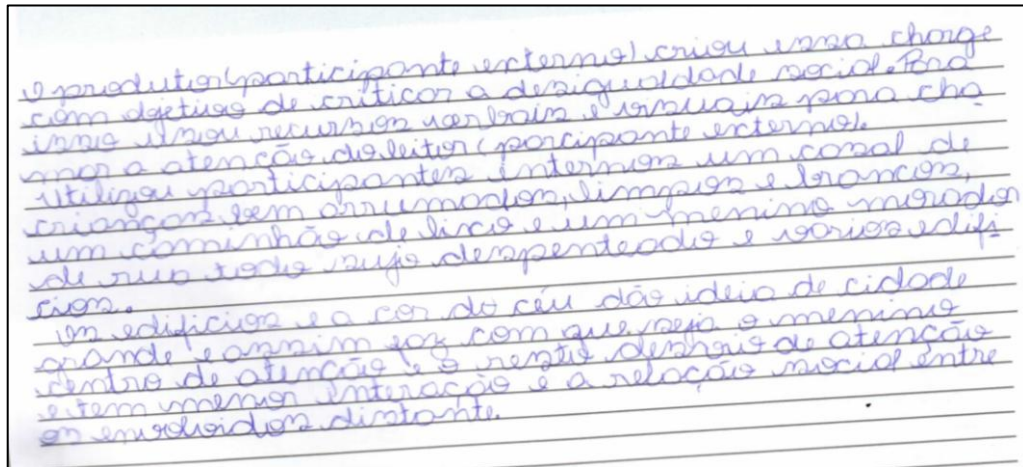 O produtor (participante externo) criou essa charge
com ojetivo de criticar a desigualdade social. Para
isso usou recursos verbais e visuais para cha
mar a atenção do leitor (parcipante externo).
Utilizou participantes internos um casal de
crianças bem arrumados, limpos e brancos,
um caminhão de lixo e um menino morador
de rua todo sujo despenteado e varios edifi
cios.
Os edificios e a cor do céu dão ideia de cidade
grande e assim faz com que seja o menino
centro de atenção e o resto de atenção
e tem menos interação e a relação social entre
os envolvidos distante.